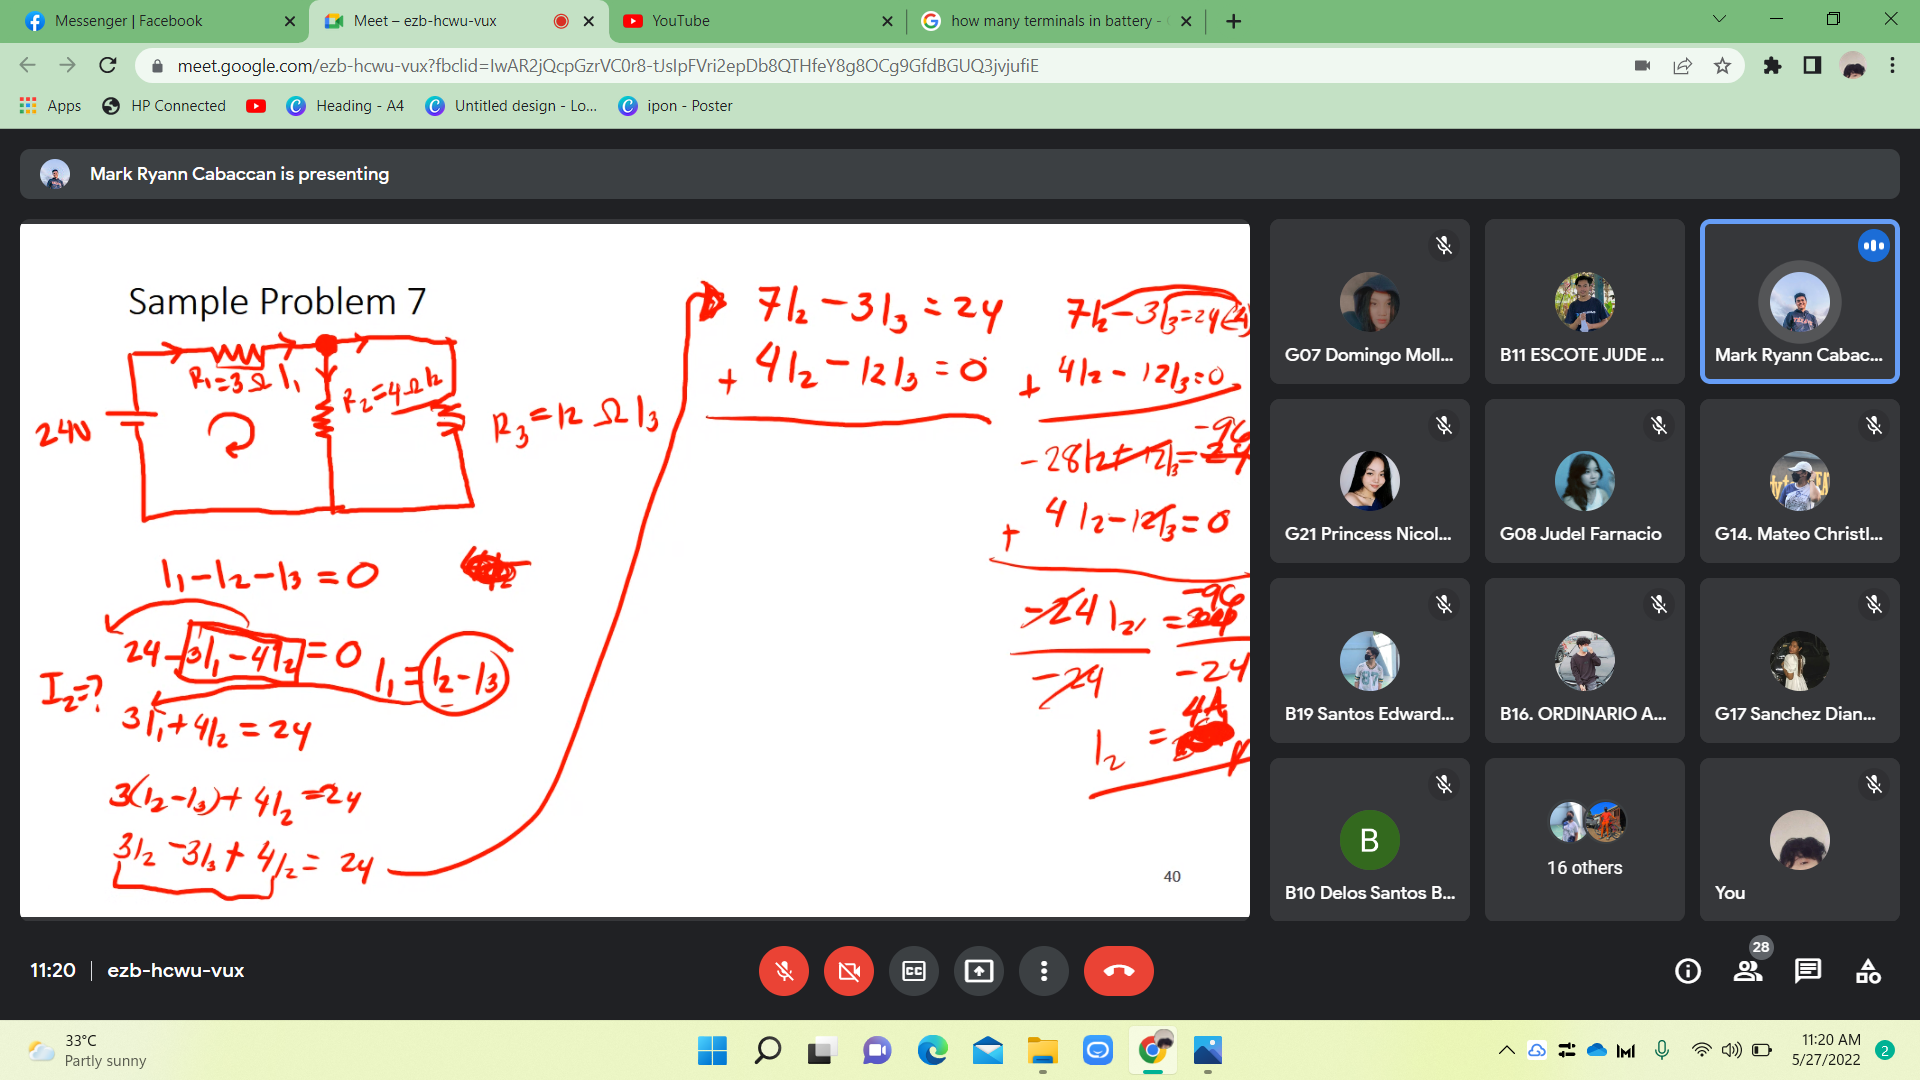 Messenger | Facebook
Meet – ezb-hcwu-vux
YouTube
how many terminals in battery -
meet.google.com/ezb-hcwu-vux?fbclid=IwAR2jQcpGzrVC0r8-tJsIpFVri2epDb8QTHfeY8g8OCg9GfdBGUQ3jvjufiE
Apps
HP Connected
Heading - A4
Untitled design - Lo...
ipon - Poster
Mark Ryann Cabaccan is presenting
Sample Problem 7
R₁=3Ω I₁
R₂=4Ω I₂
24V
R₃=12 Ω I₃
I₁-I₂-I₃=0
24-3I₁-4I₂=0
I₁=I₂-I₃
I₂=?
3I₁+4I₂=24
3(I₂-I₃)+4I₂=24
3I₂-3I₃+4I₂=24
7I₂-3I₃=24
+ 4I₂-12I₃=0
7I₂-3I₃=24(-4)
+ 4I₂-12I₃=0
-28I₂+12I₃=-96
+ 4I₂-12I₃=0
-24I₂=-96
-24 -24
I₂=4A
40
G07 Domingo Moll...
B11 ESCOTE JUDE ...
Mark Ryann Cabac...
G21 Princess Nicol...
G08 Judel Farnacio
G14. Mateo Christl...
B19 Santos Edward...
B16. ORDINARIO A...
G17 Sanchez Dian...
B
B10 Delos Santos B...
16 others
You
11:20 | ezb-hcwu-vux
CC
28
33°C
Partly sunny
11:20 AM
5/27/2022
2